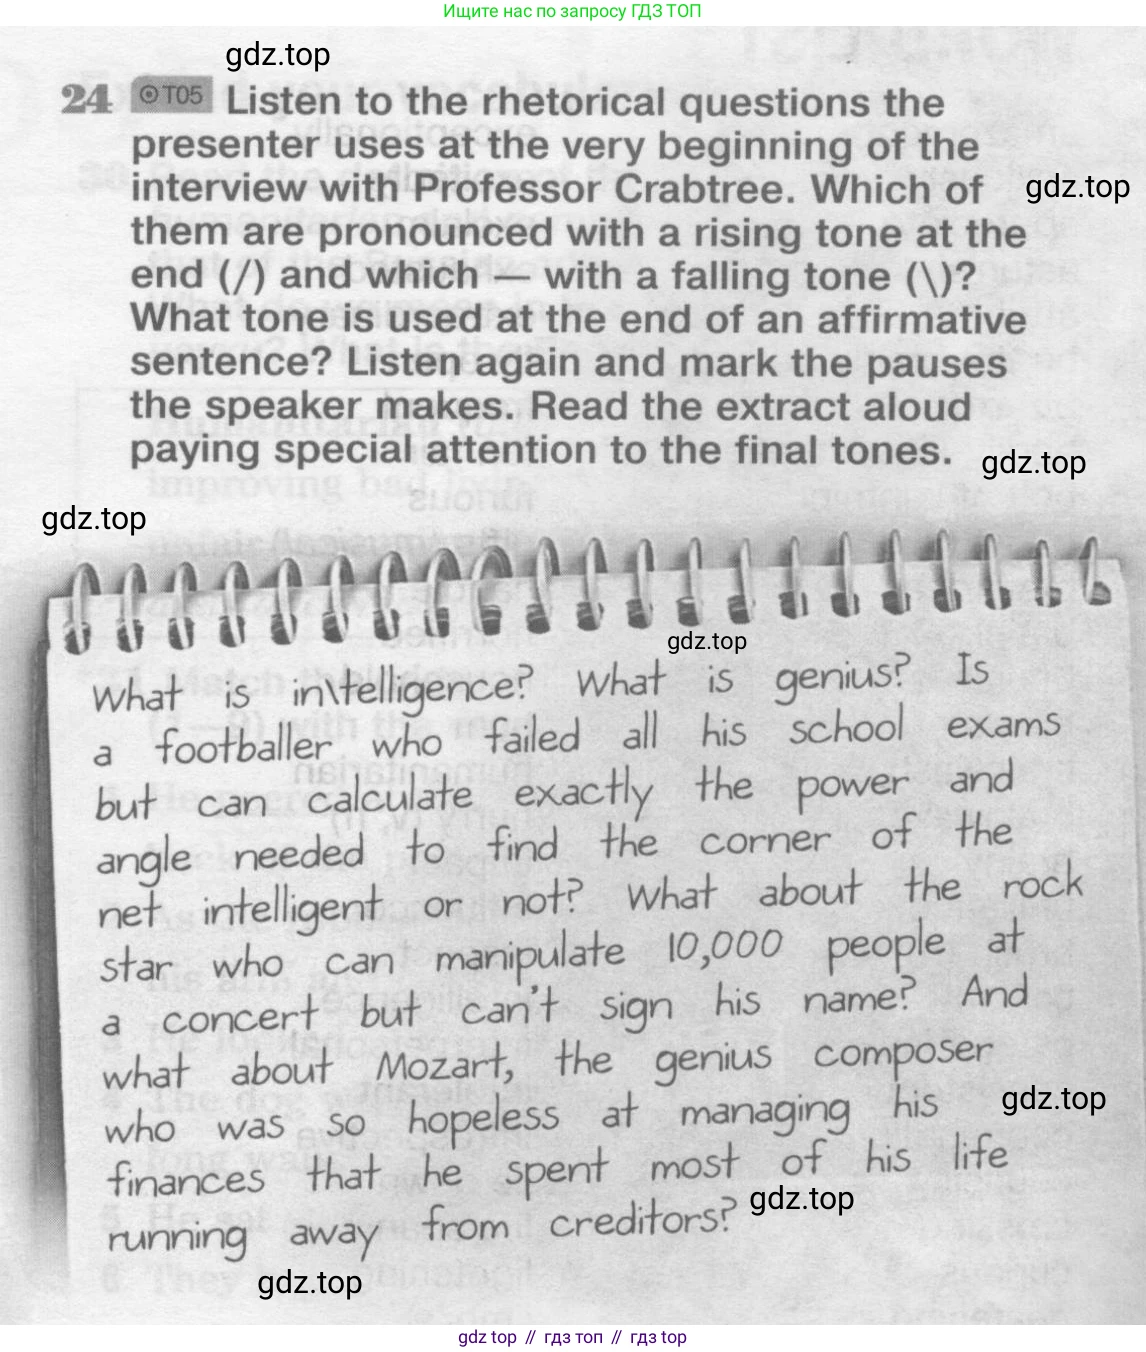 Ищите нас по запросу ГДЗ ТОП
gdz.top
24 T05 Listen to the rhetorical questions the
presenter uses at the very beginning of the
interview with Professor Crabtree. Which of
gdz.top
them are pronounced with a rising tone at the
end (/) and which — with a falling tone (\)?
What tone is used at the end of an affirmative
sentence? Listen again and mark the pauses
the speaker makes. Read the extract aloud
paying special attention to the final tones.
gdz.top
gdz.top
gdz.top
What is in\telligence? What is genius? Is
a footballer who failed all his school exams
but can calculate exactly the power and
angle needed to find the corner of the
net intelligent or not? What about the rock
star who can manipulate 10,000 people at
a concert but can't sign his name? And
what about Mozart, the genius composer
who was so hopeless at managing his
gdz.top
finances that he spent most of his life
running away from creditors?
gdz.top
gdz.top
gdz top // гдз топ // gdz top